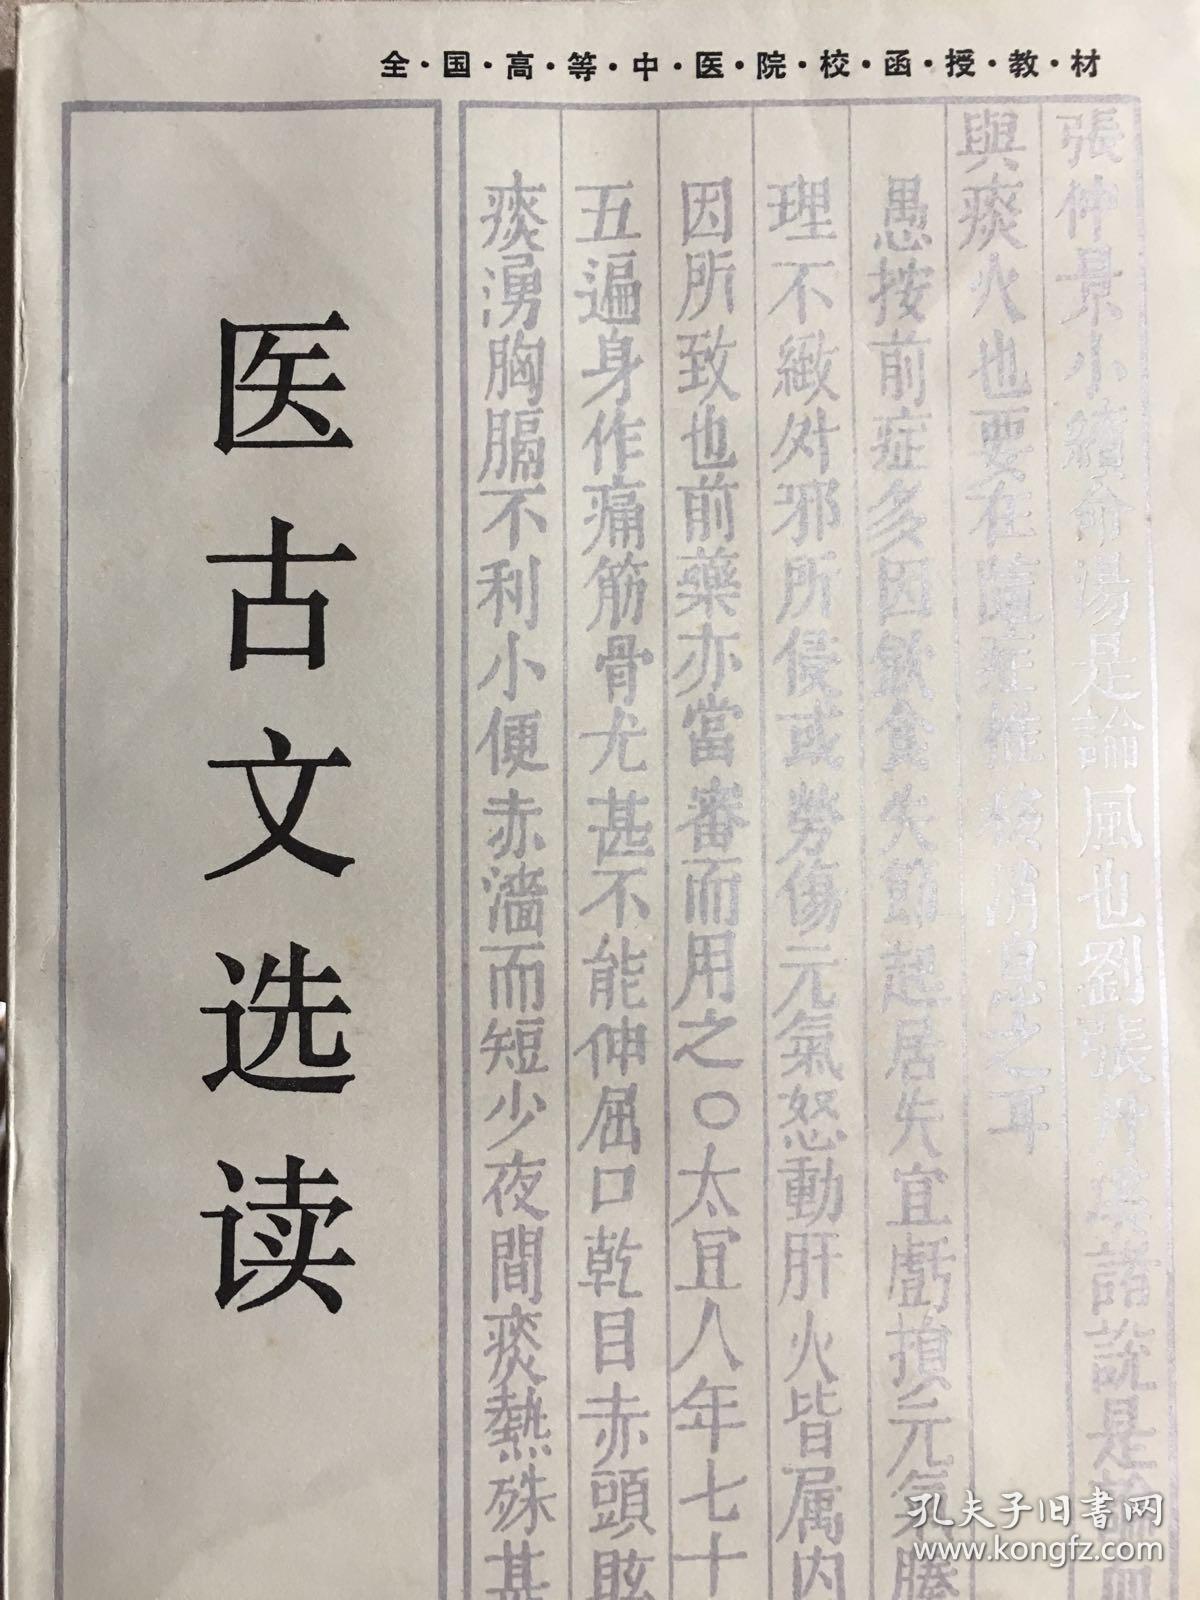 全·国·高·等·中·医·院·校·函·授·教·材
医古文选读
張仲景小續命湯是論風也劉張丹溪諸說是論
與痰火也要在隨症推移消息之耳
愚按前症多因飲食失節起居失宜虧損元氣腠
理不緻外邪所侵或勞傷元氣怒動肝火皆属内
因所致也前藥亦當審而用之○太宜人年七十
五遍身作痛筋骨尤甚不能伸屈口乾目赤頭眩
痰湧胸膈不利小便赤濇而短少夜間痰熱殊甚
孔夫子旧书网
www.kongfz.com